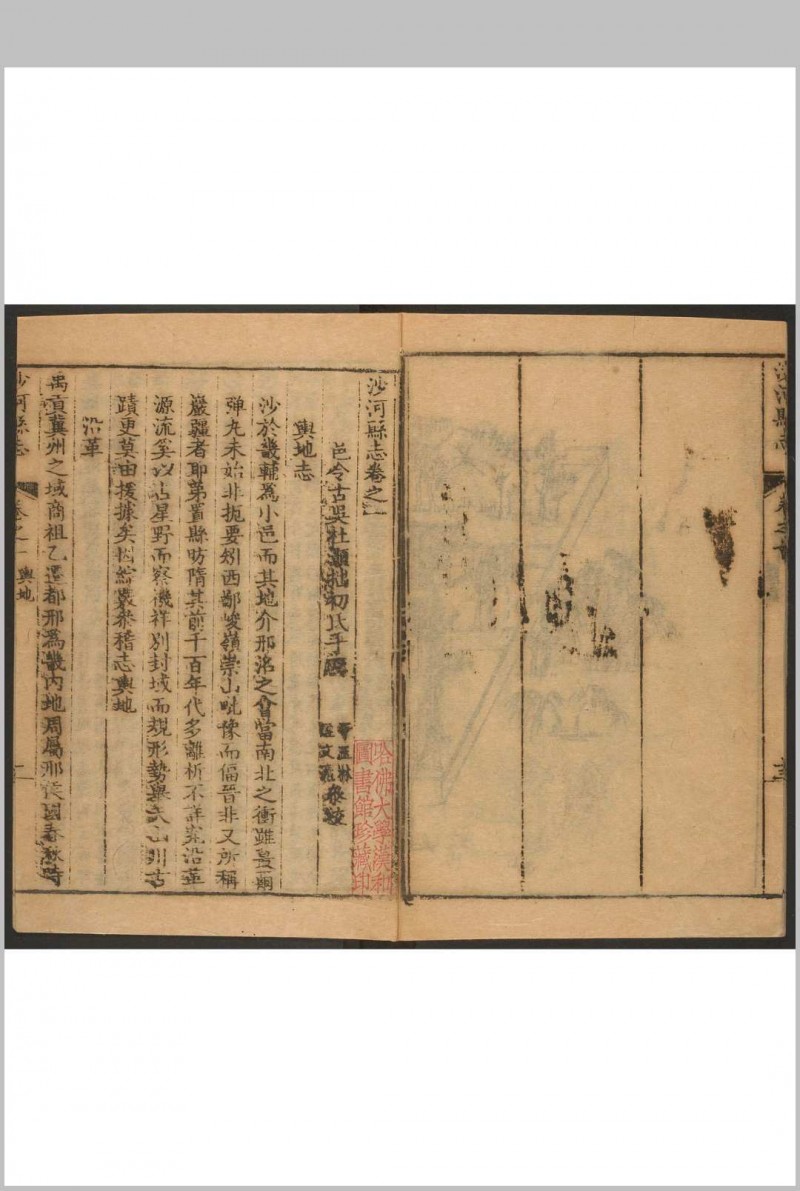 沙河縣志
卷之首
沙河縣志卷之一
邑令古吳杜灝拙初氏手
參較
哈佛大學漢和
圖書館珍藏印
輿地志
沙於畿輔為小邑而其地介邢洺之會當南北之衝雖蕞爾
彈丸未始非扼要矧西鄙峻嶺崇山毗豫而偪晉非又所稱
巖疆者耶第置縣昉隋其前千百年代多離析不詳究沿革
源流奚以占星野而察禨祥別封域而規形勢與夫山川古
蹟更莫由援據矣杜綜叢叅稽志輿地
沿革
禹貢冀州之域商祖乙遷都邢為畿內地周屬邢侯國春秋時
沙河縣志
卷之一 輿地
一